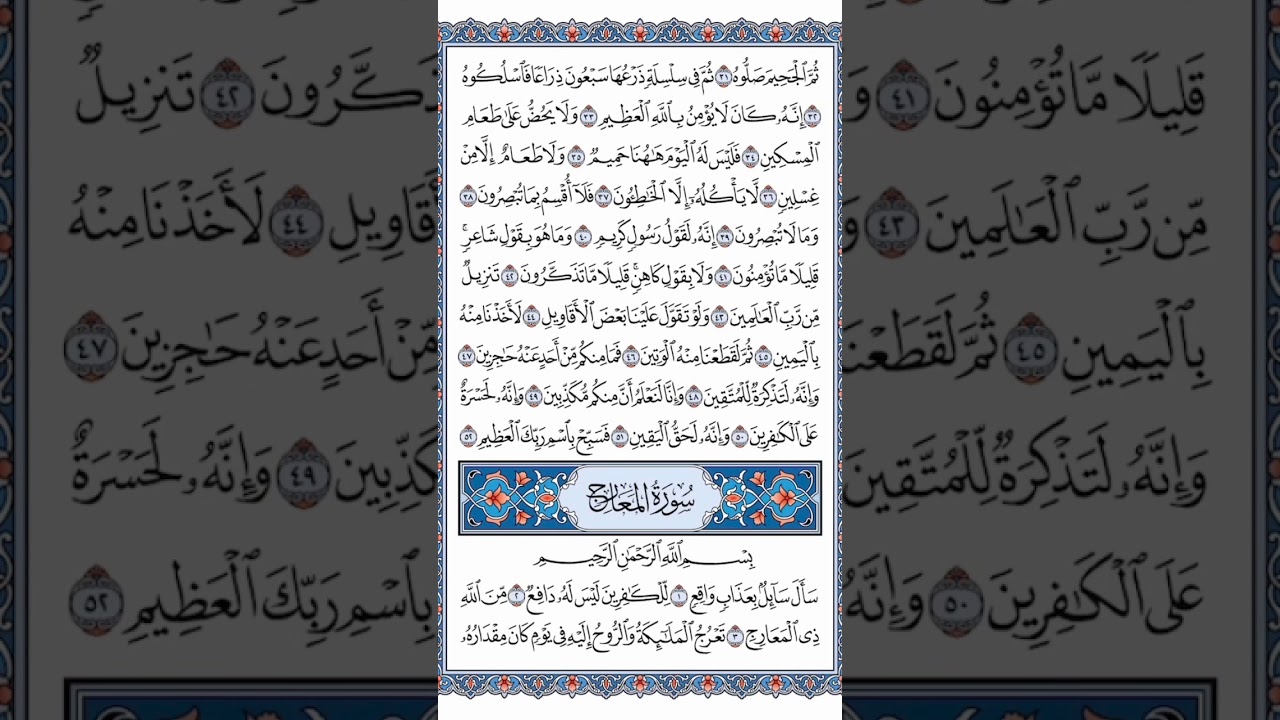 ثُمَّ ٱلْجَحِيمَ صَلُّوهُ ٣١ ثُمَّ فِى سِلْسِلَةٍ ذَرْعُهَا سَبْعُونَ ذِرَاعًا فَٱسْلُكُوهُ
٣٢ إِنَّهُۥ كَانَ لَا يُؤْمِنُ بِٱللَّهِ ٱلْعَظِيمِ ٣٣ وَلَا يَحُضُّ عَلَىٰ طَعَامِ
ٱلْمِسْكِينِ ٣٤ فَلَيْسَ لَهُ ٱلْيَوْمَ هَـٰهُنَا حَمِيمٌ ٣٥ وَلَا طَعَامٌ إِلَّا مِنْ
غِسْلِينٍ ٣٦ لَّا يَأْكُلُهُۥٓ إِلَّا ٱلْخَـٰطِـُٔونَ ٣٧ فَلَآ أُقْسِمُ بِمَا تُبْصِرُونَ ٣٨
وَمَا لَا تُبْصِرُونَ ٣٩ إِنَّهُۥ لَقَوْلُ رَسُولٍ كَرِيمٍ ٤٠ وَمَا هُوَ بِقَوْلِ شَاعِرٍۚ
قَلِيلًا مَّا تُؤْمِنُونَ ٤١ وَلَا بِقَوْلِ كَاهِنٍۚ قَلِيلًا مَّا تَذَكَّرُونَ ٤٢ تَنزِيلٌ
مِّن رَّبِّ ٱلْعَـٰلَمِينَ ٤٣ وَلَوْ تَقَوَّلَ عَلَيْنَا بَعْضَ ٱلْأَقَاوِيلِ ٤٤ لَأَخَذْنَا مِنْهُ
بِٱلْيَمِينِ ٤٥ ثُمَّ لَقَطَعْنَا مِنْهُ ٱلْوَتِينَ ٤٦ فَمَا مِنكُم مِّنْ أَحَدٍ عَنْهُ حَـٰجِزِينَ ٤٧
وَإِنَّهُۥ لَتَذْكِرَةٌ لِّلْمُتَّقِينَ ٤٨ وَإِنَّا لَنَعْلَمُ أَنَّ مِنكُم مُّكَذِّبِينَ ٤٩ وَإِنَّهُۥ لَحَسْرَةٌ
عَلَى ٱلْكَـٰفِرِينَ ٥٠ وَإِنَّهُۥ لَحَقُّ ٱلْيَقِينِ ٥١ فَسَبِّحْ بِٱسْمِ رَبِّكَ ٱلْعَظِيمِ ٥٢
سُورَةُ المَعَارِجِ
بِسْمِ ٱللَّهِ ٱلرَّحْمَـٰنِ ٱلرَّحِيمِ
سَأَلَ سَآئِلٌۢ بِعَذَابٍ وَاقِعٍ ١ لِّلْكَـٰفِرِينَ لَيْسَ لَهُۥ دَافِعٌ ٢ مِّنَ ٱللَّهِ
ذِى ٱلْمَعَارِجِ ٣ تَعْرُجُ ٱلْمَلَـٰٓئِكَةُ وَٱلرُّوحُ إِلَيْهِ فِى يَوْمٍ كَانَ مِقْدَارُهُۥ